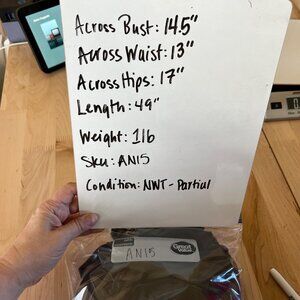 Across Bust: 14.5"
Across Waist: 13"
Across Hips: 17"
Length: 49"
Weight: 1lb
Sku: AN15
Condition: NWT - Partial
AN15
Great Value